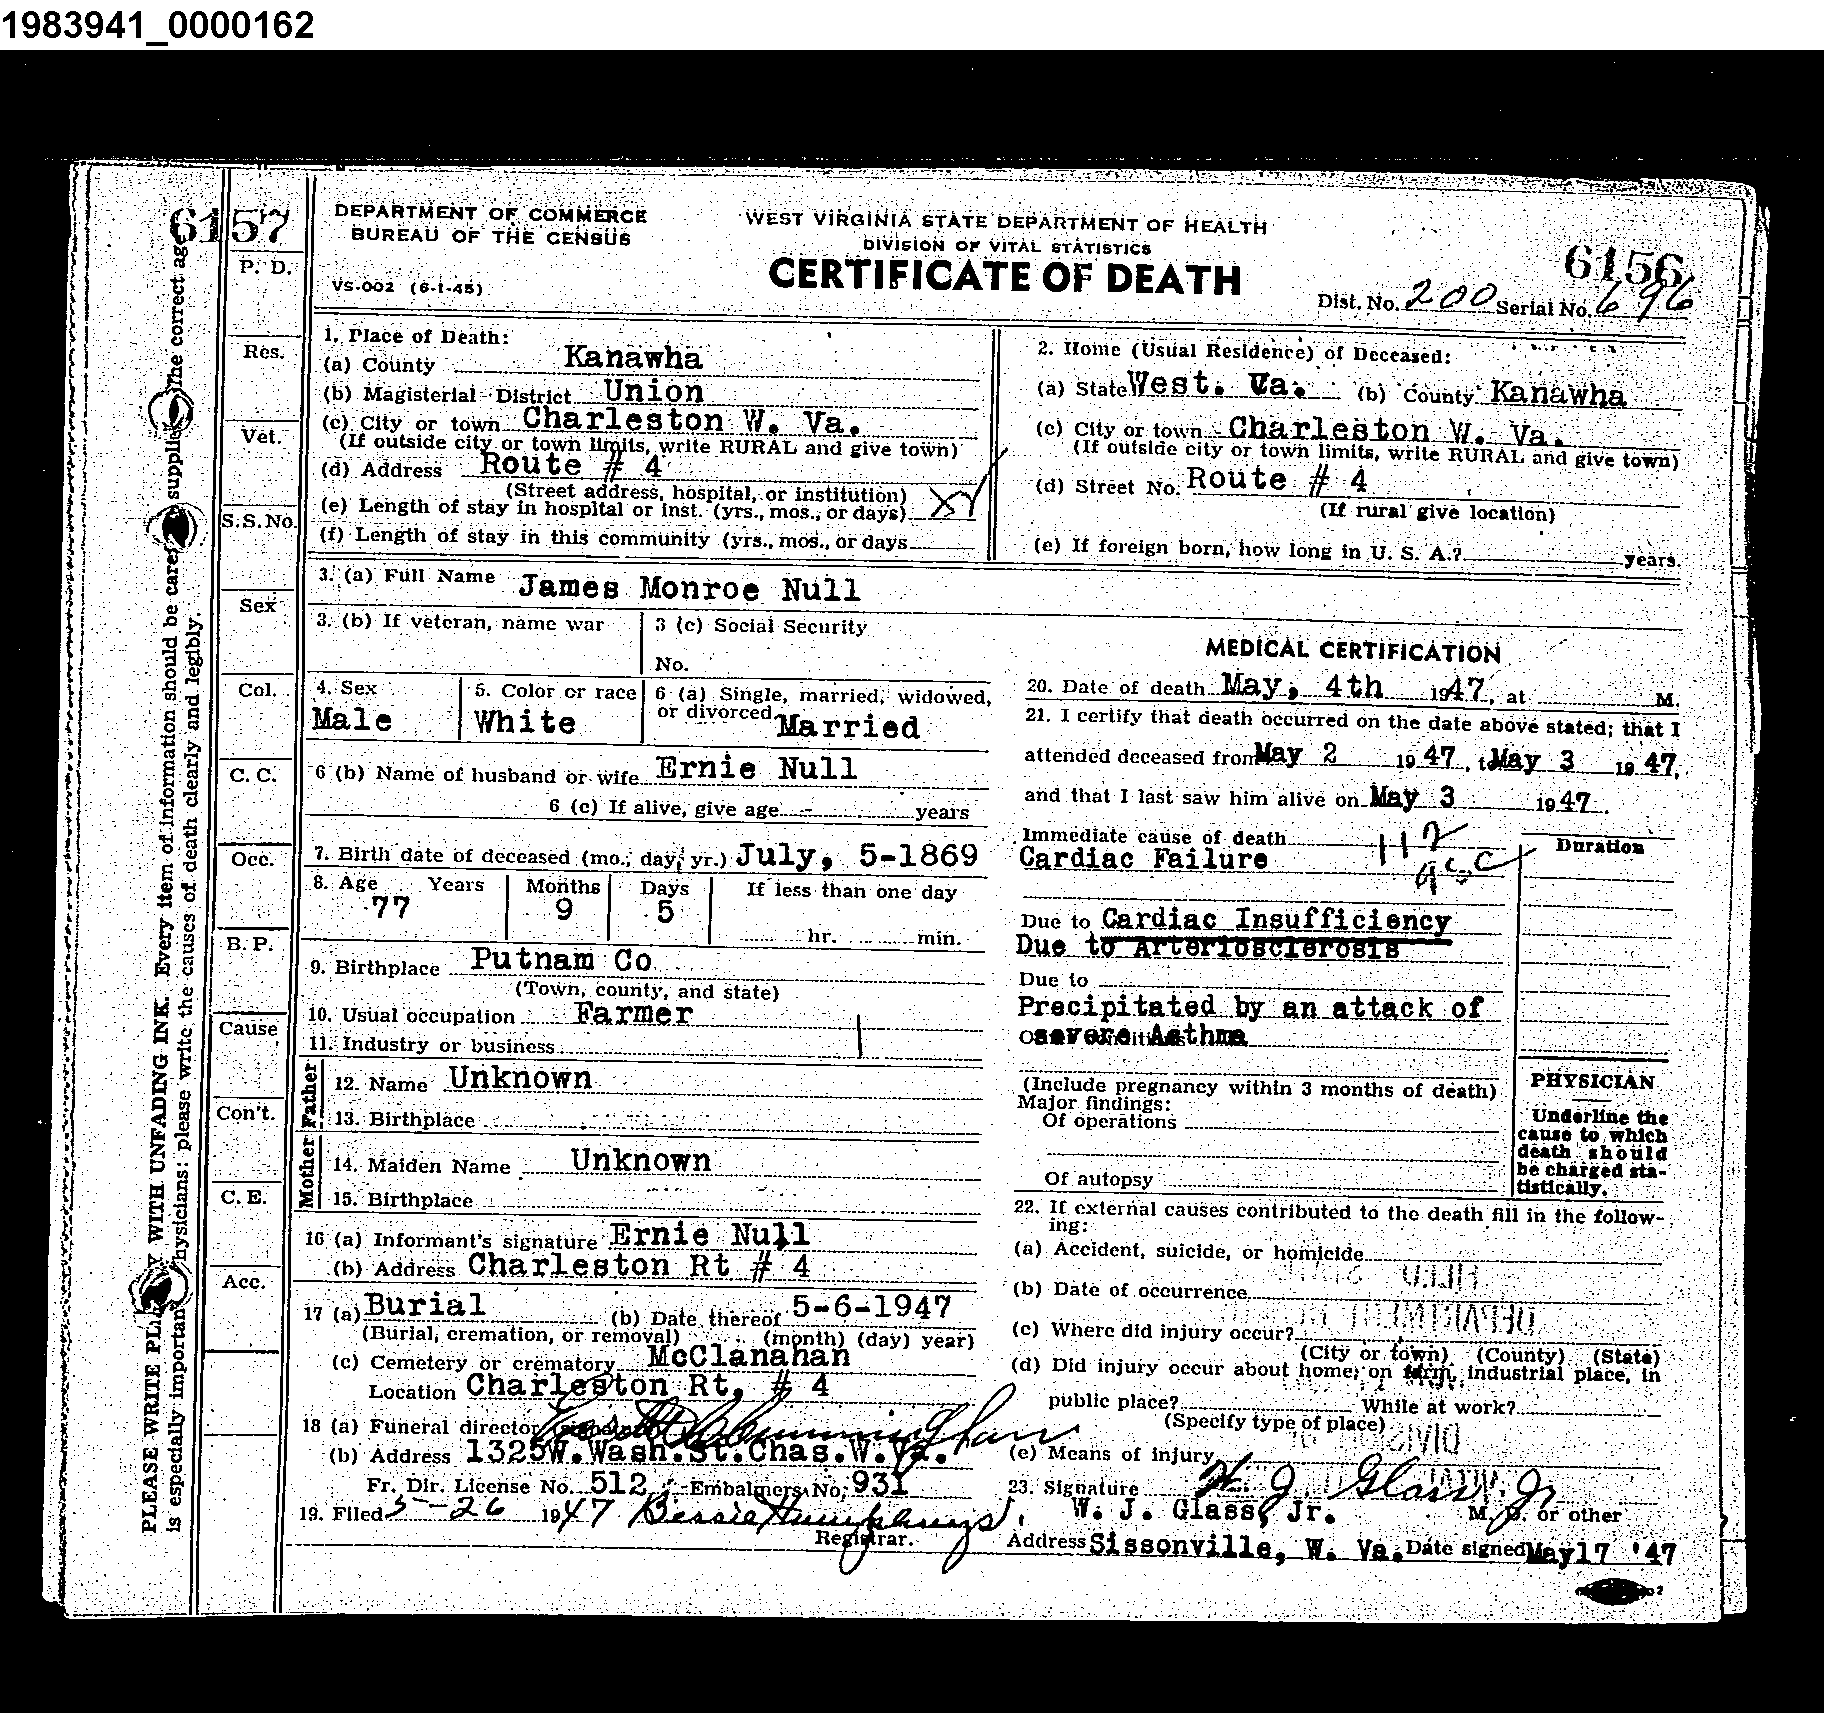 1983941_0000162
6157
DEPARTMENT OF COMMERCE
BUREAU OF THE CENSUS
VS-002 (6-1-45)
WEST VIRGINIA STATE DEPARTMENT OF HEALTH
DIVISION OF VITAL STATISTICS
CERTIFICATE OF DEATH
6156
Dist. No. 200 Serial No. 696
PLEASE WRITE PLAINLY WITH UNFADING INK. Every item of information should be carefully supplied. The correct age
is especially important. Physicians: please write the causes of death clearly and legibly.
P. D.
Res.
Vet.
S.S.No.
Sex
Col.
C. C.
Occ.
B. P.
Cause
Con't.
C. E.
Acc.
1. Place of Death:
(a) County Kanawha
(b) Magisterial District Union
(c) City or town Charleston W. Va.
(If outside city or town limits, write RURAL and give town)
(d) Address Route # 4
(Street address, hospital, or institution)
(e) Length of stay in hospital or inst. (yrs., mos., or days)
(f) Length of stay in this community (yrs., mos., or days
2. Home (Usual Residence) of Deceased:
(a) State West. Va. (b) County Kanawha
(c) City or town Charleston W. Va.
(If outside city or town limits, write RURAL and give town)
(d) Street No. Route # 4
(If rural give location)
(e) If foreign born, how long in U. S. A.? years.
3. (a) Full Name James Monroe Null
3. (b) If veteran, name war
3 (c) Social Security
No.
4. Sex
Male
5. Color or race
White
6 (a) Single, married, widowed,
or divorced Married
6 (b) Name of husband or wife Ernie Null
6 (c) If alive, give age - years
7. Birth date of deceased (mo., day, yr.) July, 5-1869
8. Age Years Months Days If less than one day
77 9 5
hr. min.
9. Birthplace Putnam Co
(Town, county, and state)
10. Usual occupation Farmer
11. Industry or business
Father
12. Name Unknown
13. Birthplace
Mother
14. Maiden Name Unknown
15. Birthplace
16 (a) Informant's signature Ernie Null
(b) Address Charleston Rt # 4
17 (a) Burial (b) Date thereof 5-6-1947
(Burial, cremation, or removal) (month) (day) year)
(c) Cemetery or crematory McClanahan
Location Charleston Rt, # 4
18 (a) Funeral director Cunningham
(b) Address 1325W.Wash.St.Chas.W.Va.
Fr. Dir. License No. 512 Embalmers No. 931
19. Filed 5-26 1947 Bessie Humphreys
Registrar.
MEDICAL CERTIFICATION
20. Date of death May, 4th 1947, at M.
21. I certify that death occurred on the date above stated; that I
attended deceased from May 2 1947, to May 3 1947,
and that I last saw him alive on May 3 1947.
Immediate cause of death
Cardiac Failure
112
Duration
Due to Cardiac Insufficiency
Due to Arteriosclerosis
Due to
Precipitated by an attack of
severe Asthma
(Include pregnancy within 3 months of death)
Major findings:
Of operations
Of autopsy
PHYSICIAN
Underline the
cause to which
death should
be charged sta-
tistically.
22. If external causes contributed to the death fill in the follow-
ing:
(a) Accident, suicide, or homicide
(b) Date of occurrence
(c) Where did injury occur?
(City or town) (County) (State)
(d) Did injury occur about home, on farm, industrial place, in
public place? While at work?
(Specify type of place)
(e) Means of injury
23. Signature W. J. Glass, Jr
W. J. Glass, Jr. M. D. or other
Address Sissonville, W. Va. Date signed May17 '47